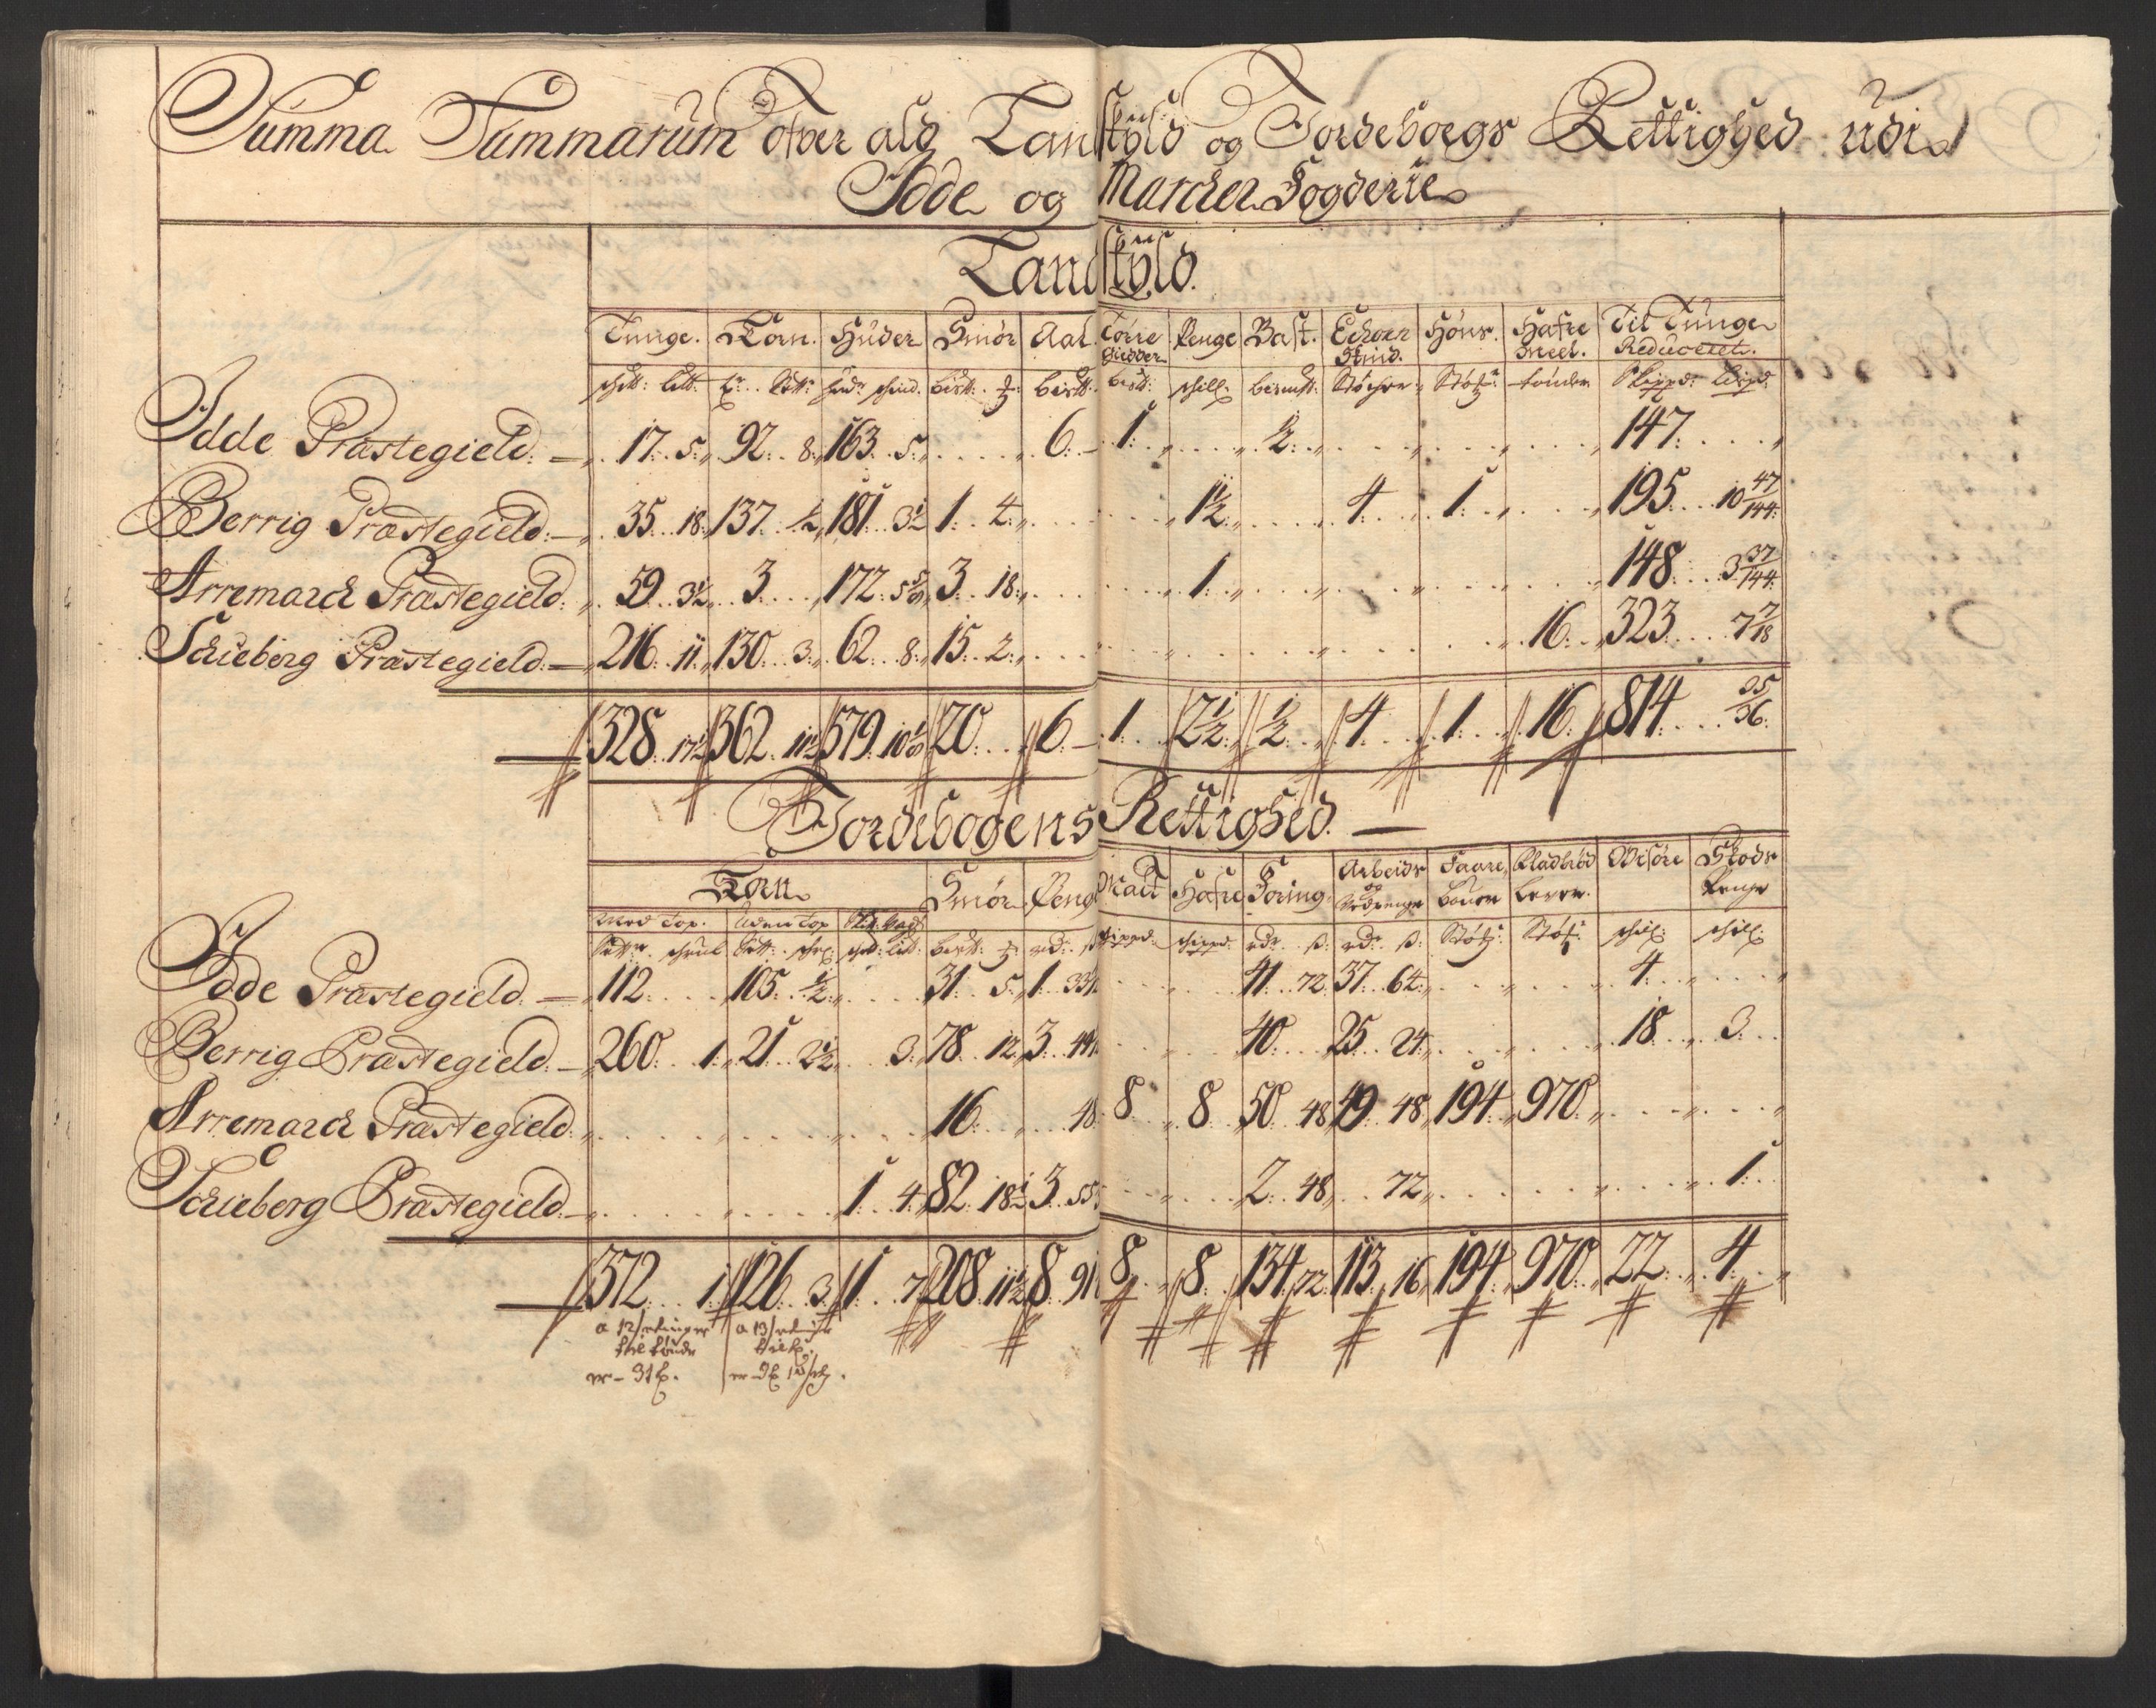 Summa Summarum Ofver ald Landskÿld og Jordeboegs Rettighed udi
Idde og Marcker Fogderie
Landskÿld.
Tunge. Korn. Huder Smør Aal. Törre Giedder Penge Bast. Echorn Skind. Höns. Hafre Meel. Til Tunge Reduceret.
Idde Præstegield. 17. 5. 92. 8. 163. 5. 6. 1. ½. 147.
Berrig Præstegield. 35. 18. 137. ½ 181. 3½ 1. 4. 1½. 4. 1. 195. 10 47/144.
Arremarck Præstegield. 59. 3½ 3. 172. 5 3. 18. 1. 148. 3 37/144.
Schieberg Præstegield. 216. 11. 130. 3. 62. 8. 15. 2. 16. 323. 7 7/18
328. 17½ 362. 11½ 579. 10 20. 6. 1. 2½ ½ 4. 1. 16. 814. 25/36.
Jordebogens Rettighed.
Korn Smör Penge Malt Hafre Foring Arbeids og Penge Faare Bouer Fladbröd Lever. Wisöre Skods Penge
Med Top. Uden Top
Idde Præstegield. 112. 105. ½. 31. 5. 1. 33 41. 72. 37. 64. 4.
Berrig Præstegield. 260. 1. 21. 2½ 3. 78. 12. 3. 40. 25. 24. 18. 3.
Arremarck Præstegield. 16. 48. 8. 8. 50. 48 49. 48. 194. 970.
Schieberg Præstegield. 1. 4. 82. 18½ 3. 55 2. 48. 72. 1.
372. 1. 126. 3. 1. 7. 208. 11½ 8. 91 8. 8. 134. 72. 113. 16. 194. 970. 22. 4.
a 12 a 13
er - 31 er